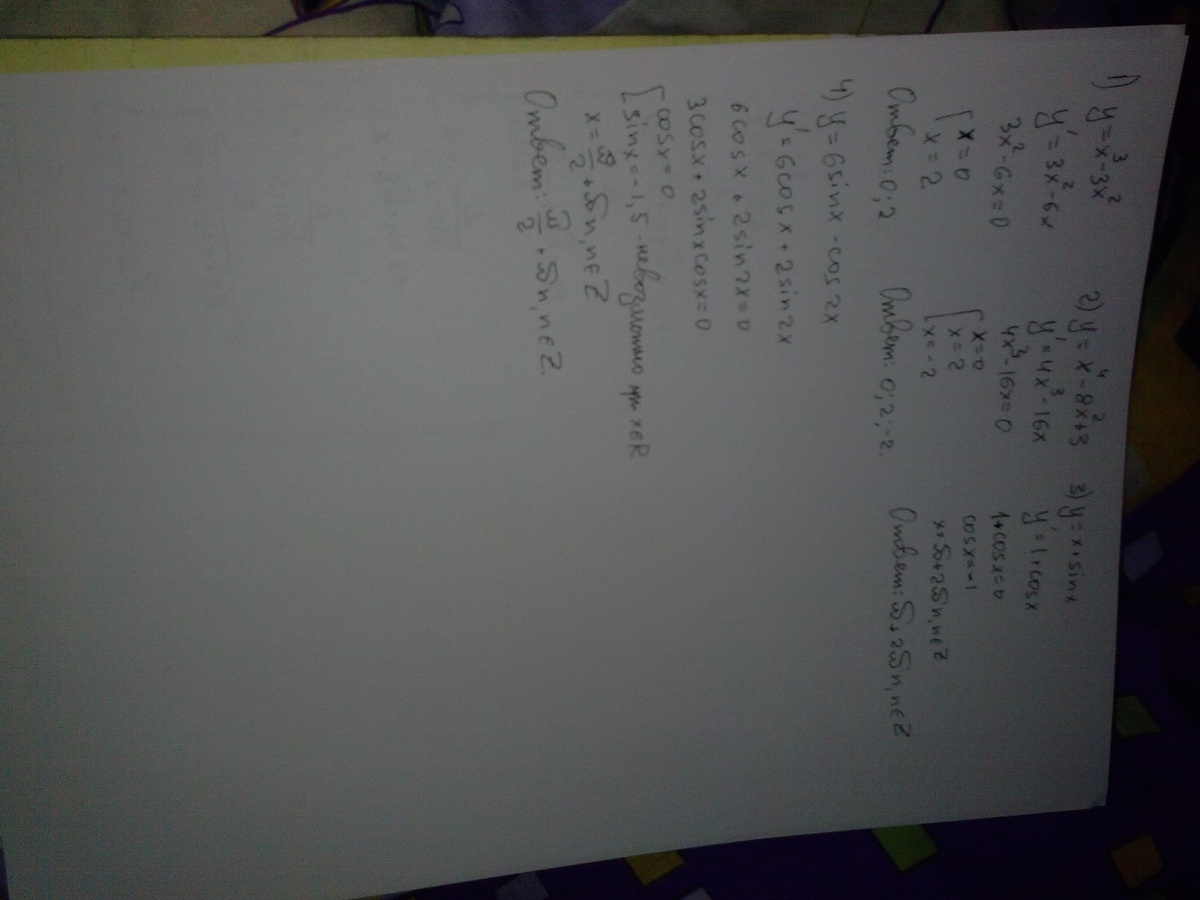 1) y = x³ - 3x²
y' = 3x² - 6x
3x² - 6x = 0
[ x = 0
x = 2
Ответ: 0; 2
2) y = x⁴ - 8x² + 3
y' = 4x³ - 16x
4x³ - 16x = 0
[ x = 0
x = 2
x = -2
Ответ: 0; 2; -2.
3) y = x + sinx
y' = 1 + cosx
1 + cosx = 0
cosx = -1
x = π + 2πn, n ∈ Z
Ответ: π + 2πn, n ∈ Z
4) y = 6sinx - cos2x
y' = 6cosx + 2sin2x
6cosx + 2sin2x = 0
3cosx + 2sinxcosx = 0
[ cosx = 0
sinx = -1,5 - невозможно при x ∈ R
x = π/2 + πn, n ∈ Z
Ответ: π/2 + πn, n ∈ Z.